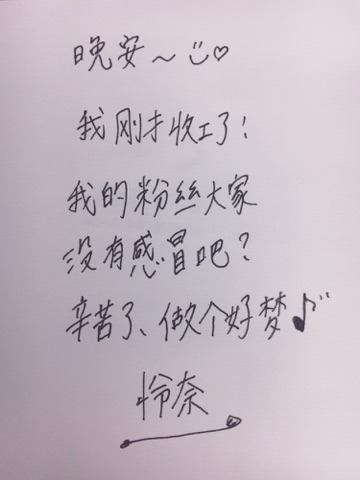 晚安~
我刚才收工了!
我的粉丝大家
没有感冒吧?
辛苦了、做个好梦♪
怜奈